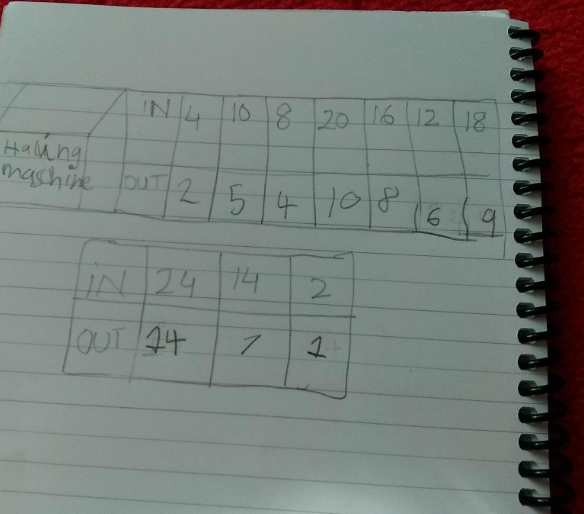 IN 4 10 8 20 16 12 18
Haling
maschine
OUT 2 5 4 10 8 6 9
IN 24 14 2
OUT 14 7 1